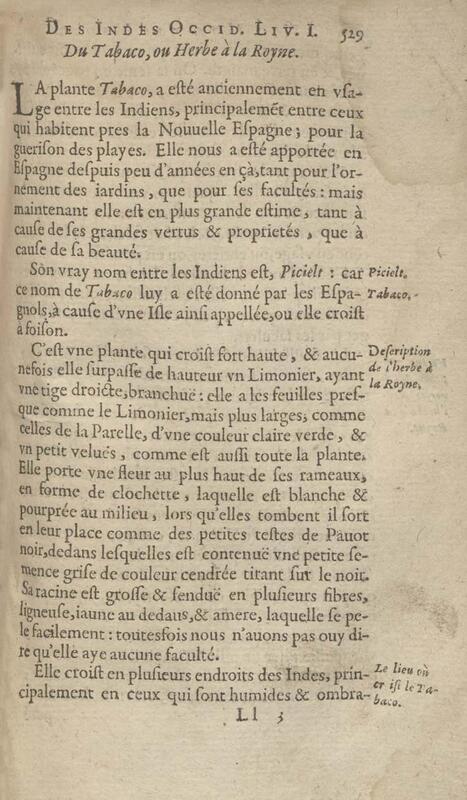 DES INDES OCCID. LIV. I. 529
Du Tabaco, ou Herbe à la Royne.
LA plante Tabaco, a esté anciennement en vsa-
ge entre les Indiens, principalemēt entre ceux
qui habitent pres la Nouuelle Espagne; pour la
guerison des playes. Elle nous a esté apportée en
Espagne despuis peu d'années en çà, tant pour l'or-
nement des iardins, que pour ses facultés: mais
maintenant elle est en plus grande estime, tant à
cause de ses grandes vertus & proprietés, que à
cause de sa beauté.
Sōn vray nom entre les Indiens est, Picielt: car
Picielt.
ce nom de Tabaco luy a esté donné par les Espa-
Tabaco.
gnols, à cause d'vne Isle ainsi appellée, ou elle croist
à foison.
C'est vne plante qui croist fort haute, & aucu-
Description
nefois elle surpasse de hauteur vn Limonier, ayant
de l'herbe à
vne tige droicte, branchuë: elle a les feuilles pres-
la Royne.
que comme le Limonier, mais plus larges, comme
celles de la Parelle, d'vne couleur claire verde, &
vn petit velués, comme est aussi toute la plante.
Elle porte vne fleur au plus haut de ses rameaux,
en forme de clochette, laquelle est blanche &
pourprée au milieu, lors qu'elles tombent il sort
en leur place comme des petites testes de Pauot
noir, dedans lesquelles est contenuë vne petite se-
mence grise de couleur cendrée tirant sur le noir.
Sa racine est grosse & fenduë en plusieurs fibres,
ligneuse, iaune au dedaus, & amere, laquelle se pe-
le facilement: toutesfois nous n'auons pas ouy di-
re qu'elle aye aucune faculté.
Elle croist en plusieurs endroits des Indes, prin-
Le lieu où
cipalement en ceux qui sont humides & ombra-
croist le Ta-
baco.
Ll 3